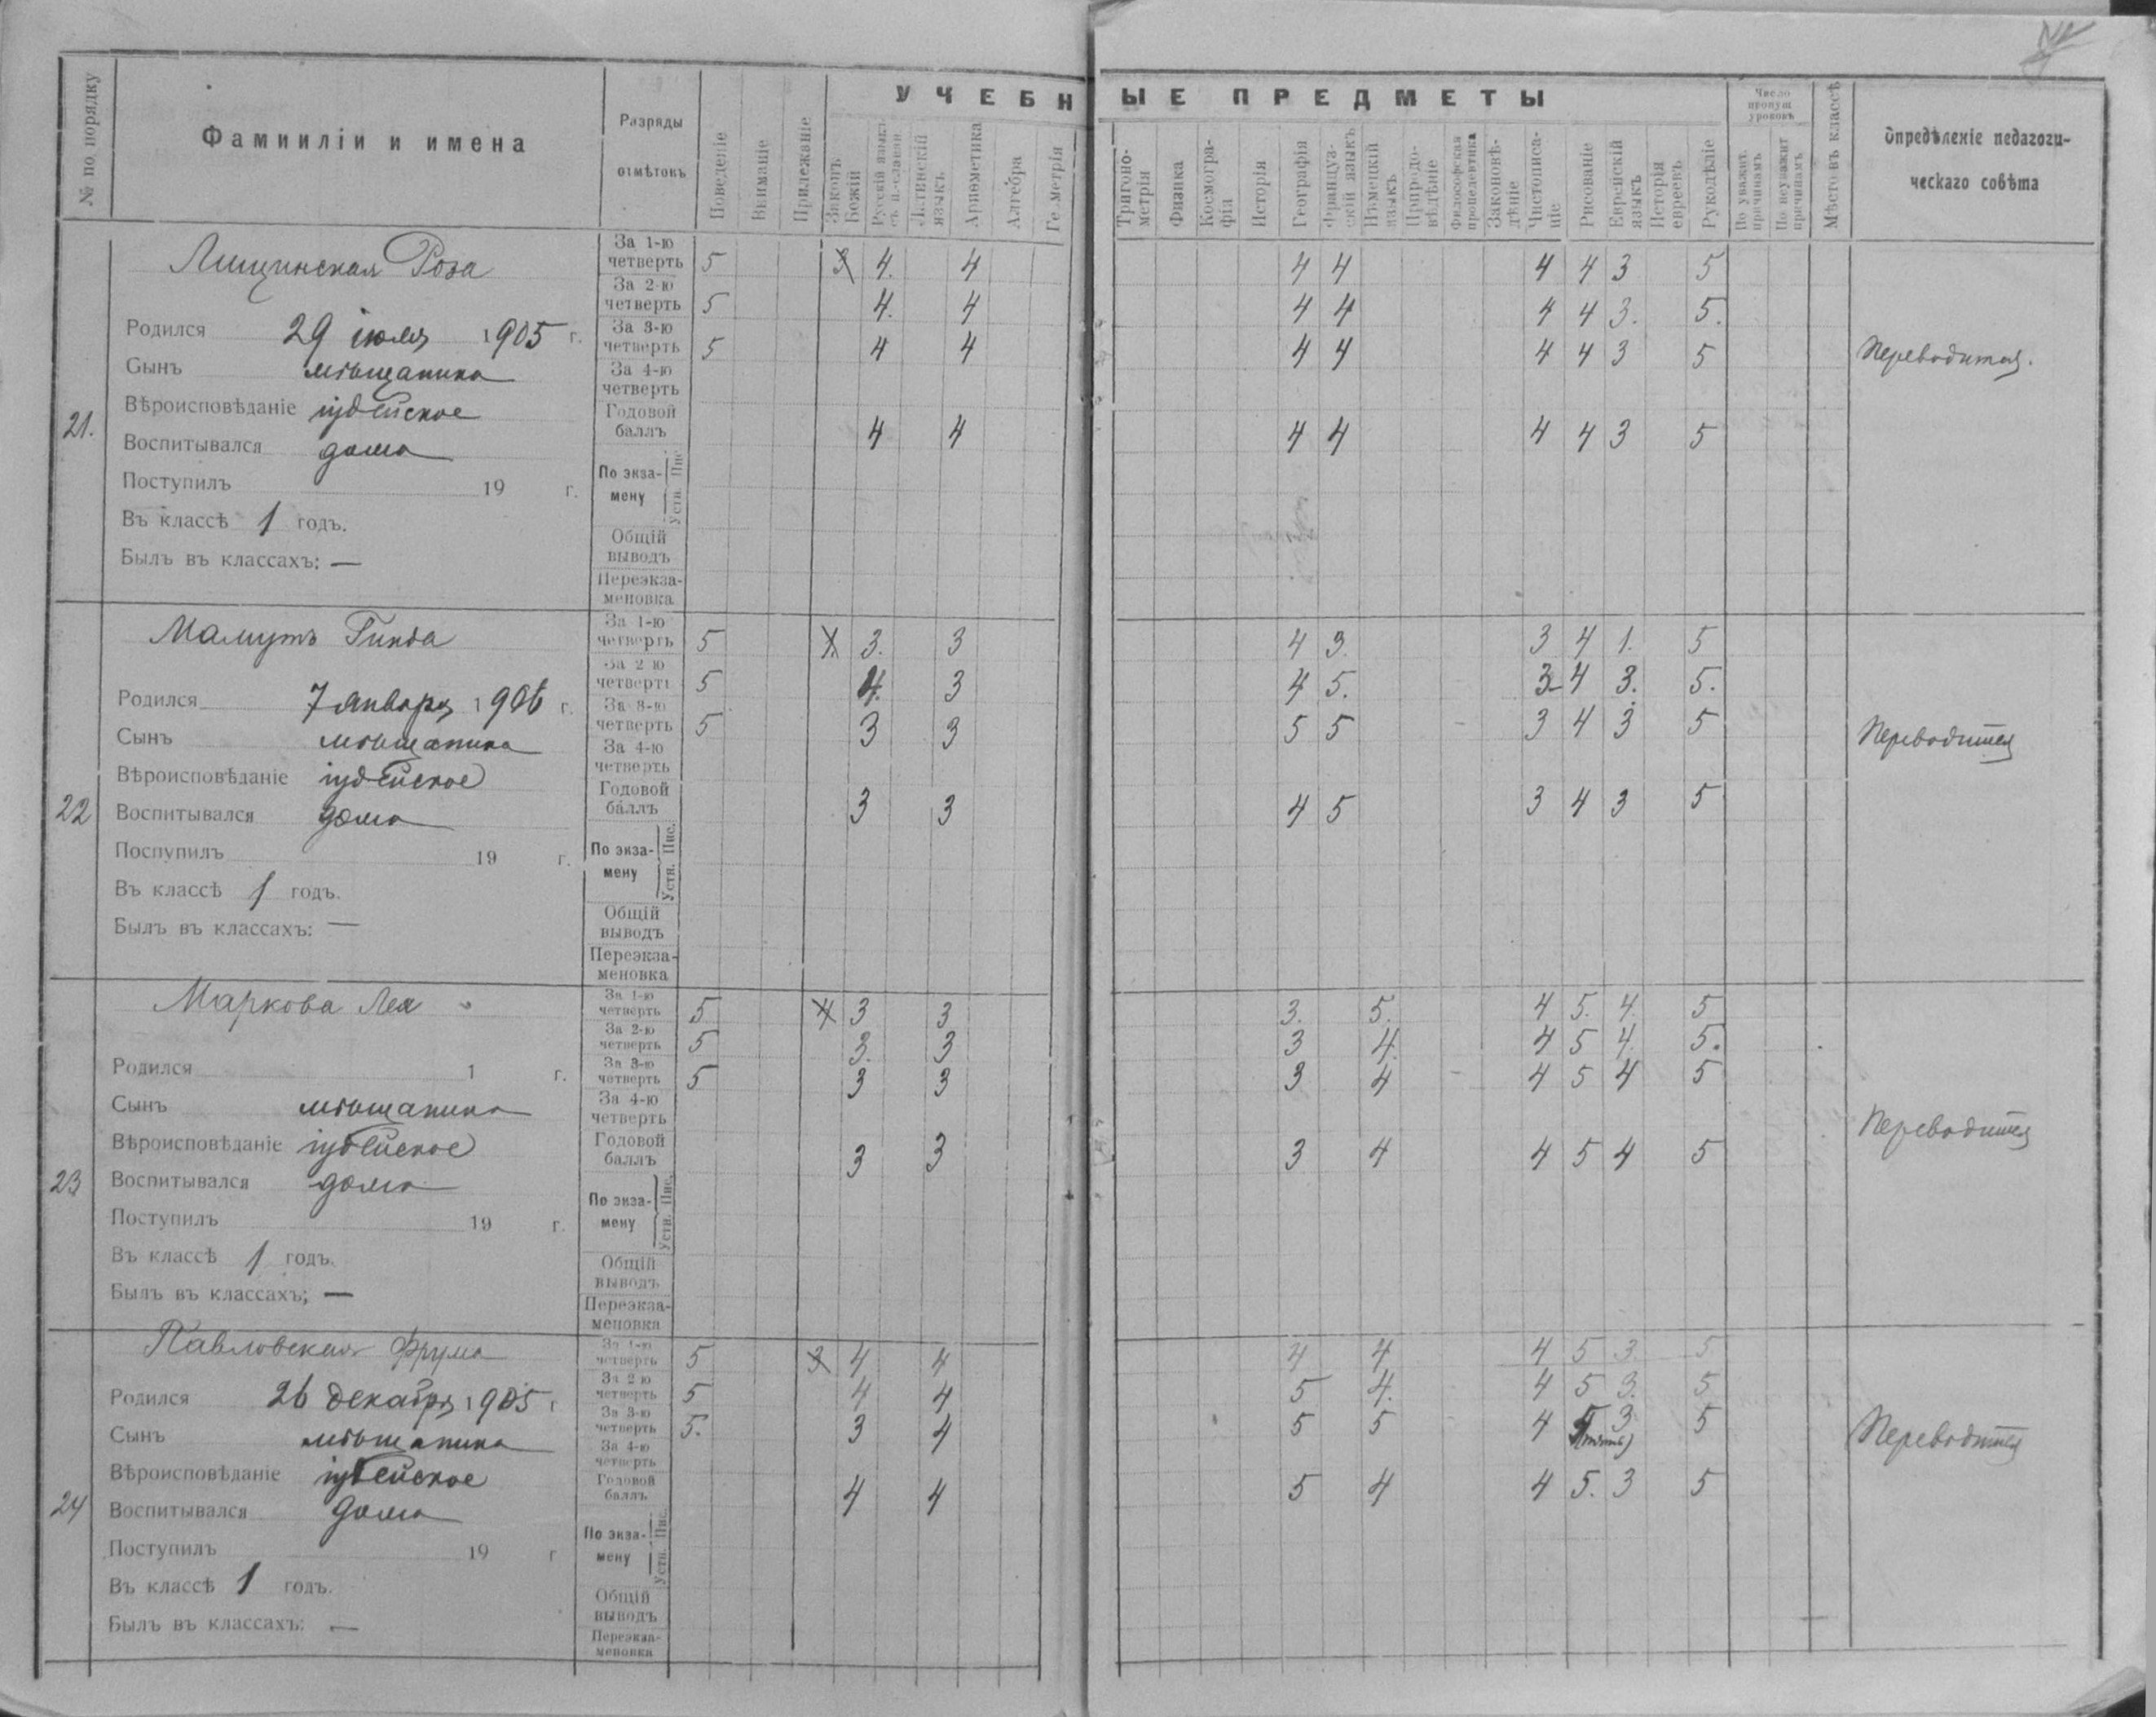 УЧЕБНЫЕ ПРЕДМЕТЫ
№ по порядку
Фамииліи и имена
Разряды отмѣтокъ
Поведеніе
Вниманіе
Прилежаніе
Законъ Божій
Русскій языкъ съ ц.-славян
Латинскій языкъ
Ариѳметика
Алгебра
Ге метрія
Тригоно-метрія
Физика
Космогра-фія
Исторія
Географія
Француз-скій языкъ
Нѣмецкій языкъ
Природо-вѣдѣніе
Философская пропедевтика
Законовѣ-дѣніе
Чистописа-ніе
Рисованіе
Еврейскій языкъ
Исторія евреевъ
Рукодѣліе
Число пропущ уроковъ
По уважит. причинамъ
По неуважит причинамъ
Мѣсто въ классѣ
Опредѣленіе педагоги-ческаго совѣта
21.
Лищинская Роза
Родился 29 іюля 1905 г.
Сынъ мѣщанина
Вѣроисповѣданіе іудейское
Воспитывался дома
Поступилъ 19 г.
Въ классѣ 1 годъ.
Былъ въ классахъ: —
За 1-ю четверть 5 3 4. 4 4 4 4 4 3 5
За 2-ю четверть 5 4. 4 4 4 4 4 3. 5.
За 3-ю четверть 5 4 4 4 4 4 4 3 5
За 4-ю четверть
Годовой баллъ 4 4 4 4 4 4 3 5
По экза-мену Пис Устн.
Общій выводъ
Переэкза-меновка
Переводится.
22
Мамутъ Гинда
Родился 7 января 1906 г.
Сынъ мѣщанина
Вѣроисповѣданіе іудейское
Воспитывался дома
Поспупилъ 19 г.
Въ классѣ 1 годъ.
Былъ въ классахъ: —
За 1-ю четверть 5 3. 3 4 3. 3 4 1. 5
За 2 ю четверть 5 4. 3 4 5. 3 4 3. 5.
За 3-ю четверть 5 3 3 5 5 3 4 3 5
За 4-ю четверть
Годовой баллъ 3 3 4 5 3 4 3 5
По экза-мену Пис. Устн.
Общій выводъ
Переэкза-меновка
Переводится
23
Маркова Лея
Родился 1 г.
Сынъ мѣщанина
Вѣроисповѣданіе іудейское
Воспитывался дома
Поступилъ 19 г.
Въ классѣ 1 годъ.
Былъ въ классахъ; —
За 1-ю четверть 5 4 3 3 3. 5. 4 5. 4. 5
За 2-ю четверть 5 3. 3 3 4. 4 5 4. 5.
За 3-ю четверть 5 3 3 3 4 4 5 4 5
За 4-ю четверть
Годовой баллъ 3 3 3 4 4 5 4 5
По экза-мену Пис. Устн.
Общій выводъ
Переэкза-меновка
Переводится
24
Павловская Фрума
Родился 26 декабря 1905 г
Сынъ мѣщанина
Вѣроисповѣданіе іудейское
Воспитывался дома
Поступилъ 19 г
Въ классѣ 1 годъ.
Былъ въ классахъ: —
За 1-ю четверть 5 3 4 4 4 4 4 5 3. 5
За 2 ю четверть 5 4 4 5 4. 4 5 3. 5
За 3-ю четверть 5. 3 4 5 5 4 5 3 5
За 4-ю четверть
Годовой баллъ 4 4 5 4 4 5. 3 5
По экза-мену Пис. Устн.
Общій выводъ
Переэкза-меновка
Переводится